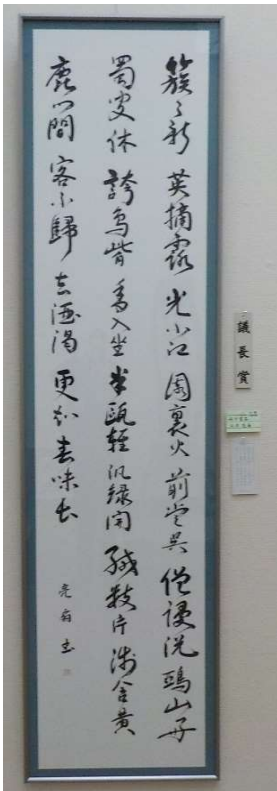 簇々新英摘露光小江園裏火前嘗呉僧謾説鴉山好
蜀叟休誇鳥觜香入坐半甌輕泛緑開緘数片浅含黄
鹿門客不歸去酒渇更知春味長
書
議長賞